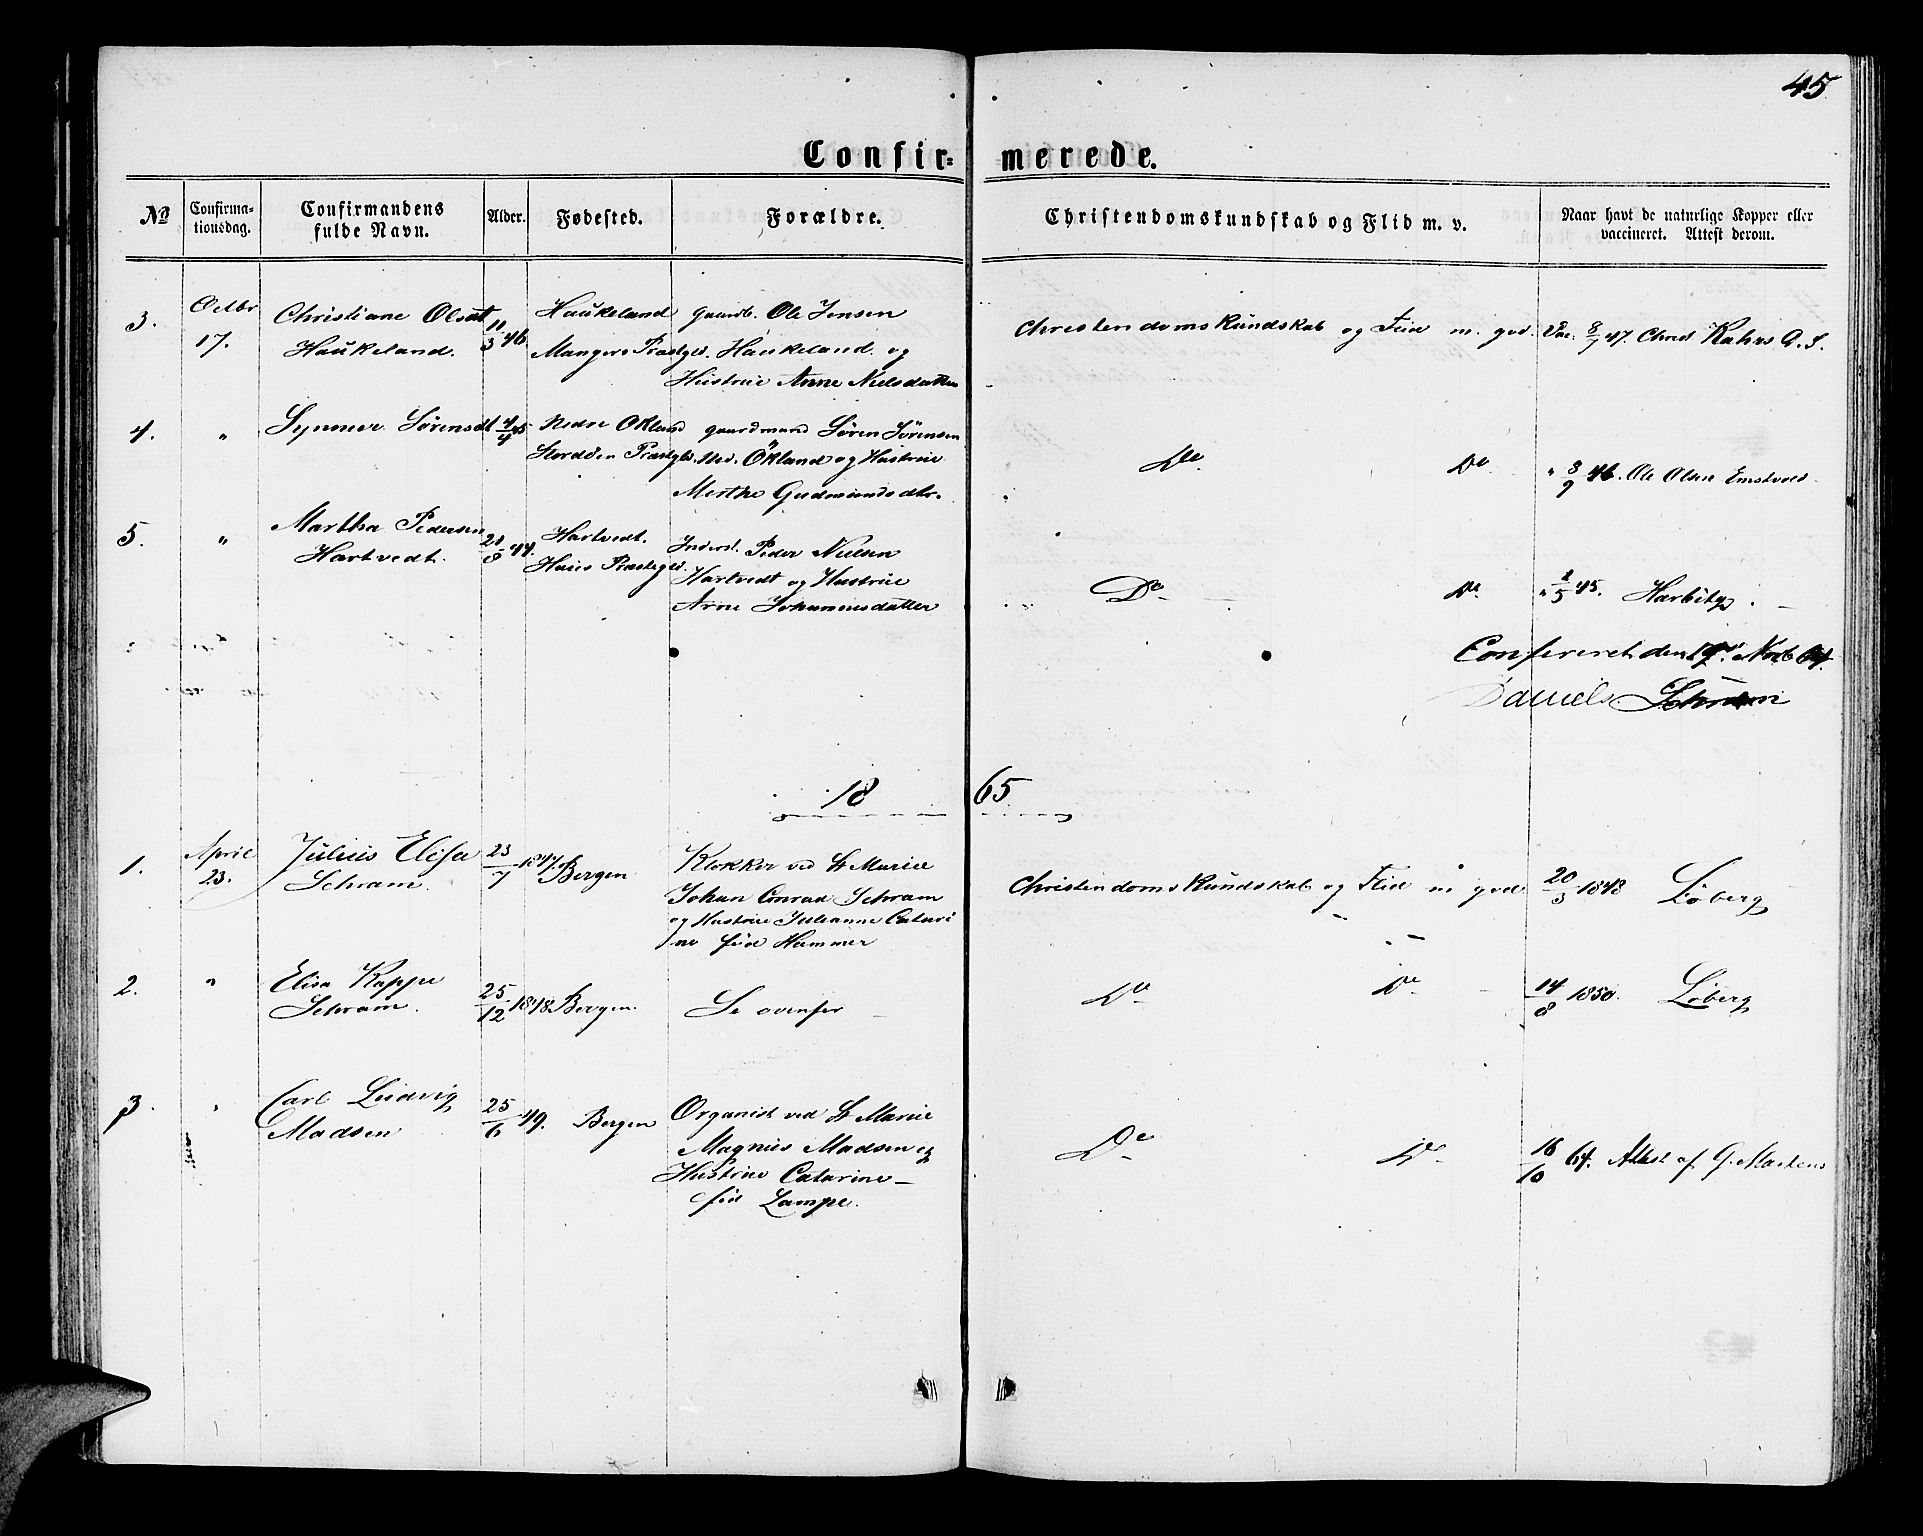 45
Confir= merede.
No Confirma-tionsdag. Confirmandens fulde Navn. Alder. Fødested. Forældre. Christendomskundskab og Flid m. v. Naar havt de naturlige Kopper eller vaccineret. Attest derom.
3. Octbr 17. Christiane Olsdt Haukeland. 11/3 46 Haukeland Mangers Præstgld. gaardb. Ole Jensen
Haukeland og
Hustrue Anne Nielsdatter
Christendoms Kundskab og Flid m. god. Vac. 8/7 47. Christ Rahrs A. S.
4. " Synneve Sørensdt 4/4 45 Nedre Økland Stordøen Præstgld. gaardmand Sören Sørensen
Ned. Økland og Hustrue
Merthe Gudmundsdtr.
Do Do " 3/9 46. Ole Olsen
5. " Martha Pedersen Hartvedt. 21/8 44. Hartvedt. Haus Præstegld. Inderst. Peder Nielsen
Hartvedt og Hustrue
Anne Johannesdatter
Do Do " 1/5 45. Harbitz.
Confereret den 19de Novb 64.
Daniels
18 65
1. April 23. Julius Elisa Schram. 23/7 1847. Bergen Klokker ved St Mariæ
Johan Conrad Schram
og Hustrue Julianne Catari
ne fød Hammer
Christendoms Kundskab og Flid m god 20/3 1848 Løberg
2. " Elisa Kappe Schram. 25/12 1848 Bergen. Se ovenfor
Do Do 14/8 1850. Løberg
3. " Carl Ludvig Madsen 25/6 49. Bergen Organist ved St Mariæ
Magnus Madsen og
Hustrue Catarine
fød Lampe.
Do Do 16/10 64. Attest af G. Martens